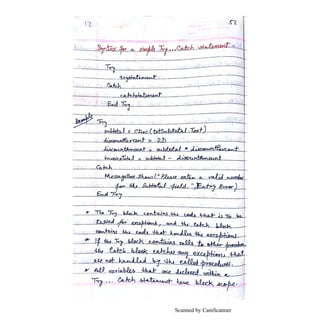 12 52
Syntax for a simple Try...Catch statement -
Try
trystatement
Catch
catchstatement
End Try
Example
Try
subtotal = CDec(txtSubtotal.Text)
discountPercent = .2D
discountAmount = subtotal * discountPercent
invoiceTotal = subtotal - discountAmount
Catch
MessageBox.Show("Please enter a valid number
for the Subtotal field.", "Entry Error)
End Try
* The Try block contains the code that is to be
tested for exceptions, and the catch block
contains the code that handles the exceptions.
* If the Try block contains calls to other procedures
the Catch block catches any exceptions that
are not handled by the called procedures.
* All variables that are declared within a
Try... Catch statement have block scope.
Scanned by CamScanner